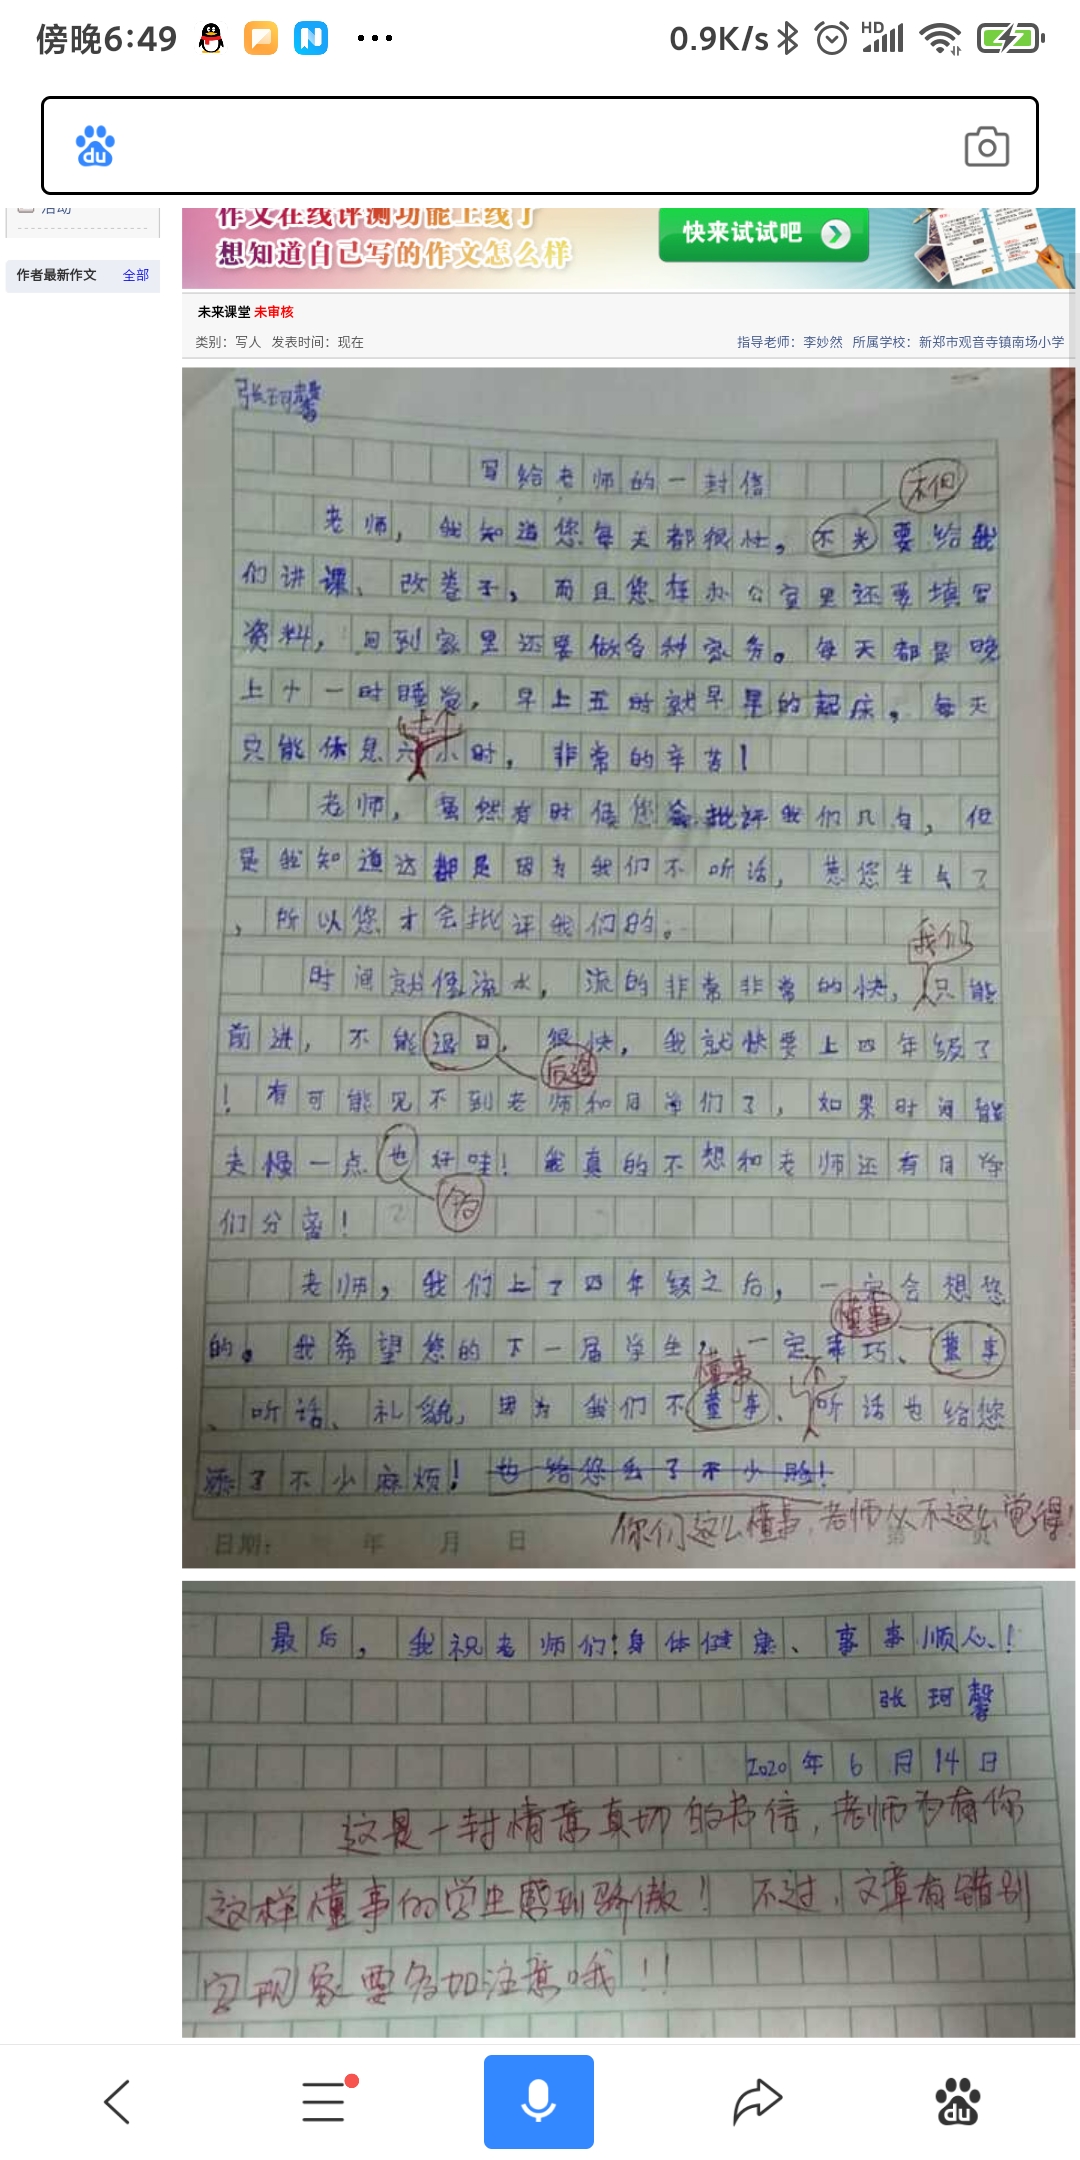 傍晚6:49
0.9K/s
HD
du
活动
作文在线评测功能上线了
想知道自己写的作文怎么样
快来试试吧
作者最新作文 全部
未来课堂 未审核
类别：写人 发表时间：现在
指导老师：李妙然 所属学校：新郑市观音寺镇南场小学
张珂馨
写给老师的一封信
不但
老师，我知道您每天都很忙，不光要给我
们讲课、改卷子，而且您在办公室里还要填写
资料，回到家里还要做各种家务。每天都是晚
上十一时睡觉，早上五时就早早的起床，每天
七个
只能休息六小时，非常的辛苦！
老师，虽然有时候您会批评我们几句，但
是我知道这都是因为我们不听话，惹您生气了
，所以您才会批评我们的。
我们
时间就像流水，流的非常非常的快，只能
前进，不能退日，很快，我就快要上四年级了
后退
！有可能见不到老师和同学们了，如果时间能
走慢一点也好哇！我真的不想和老师还有同学
们分离！
老师，我们上了四年级之后，一定会想您
懂事
的。我希望您的下一届学生，一定乖巧、董事
懂事 不
、听话、礼貌，因为我们不董事、听话也给您
添了不少麻烦！也给您丢了不少脸！
你们这么懂事，老师从不这么觉得！
日期： 年 月 日 第 页
最后，我祝老师们：身体健康、事事顺心！
张珂馨
2020年6月14日
这是一封情意真切的书信，老师为有你
这样懂事的学生感到骄傲！不过，文章有错别
字现象要多加注意哦！！
du